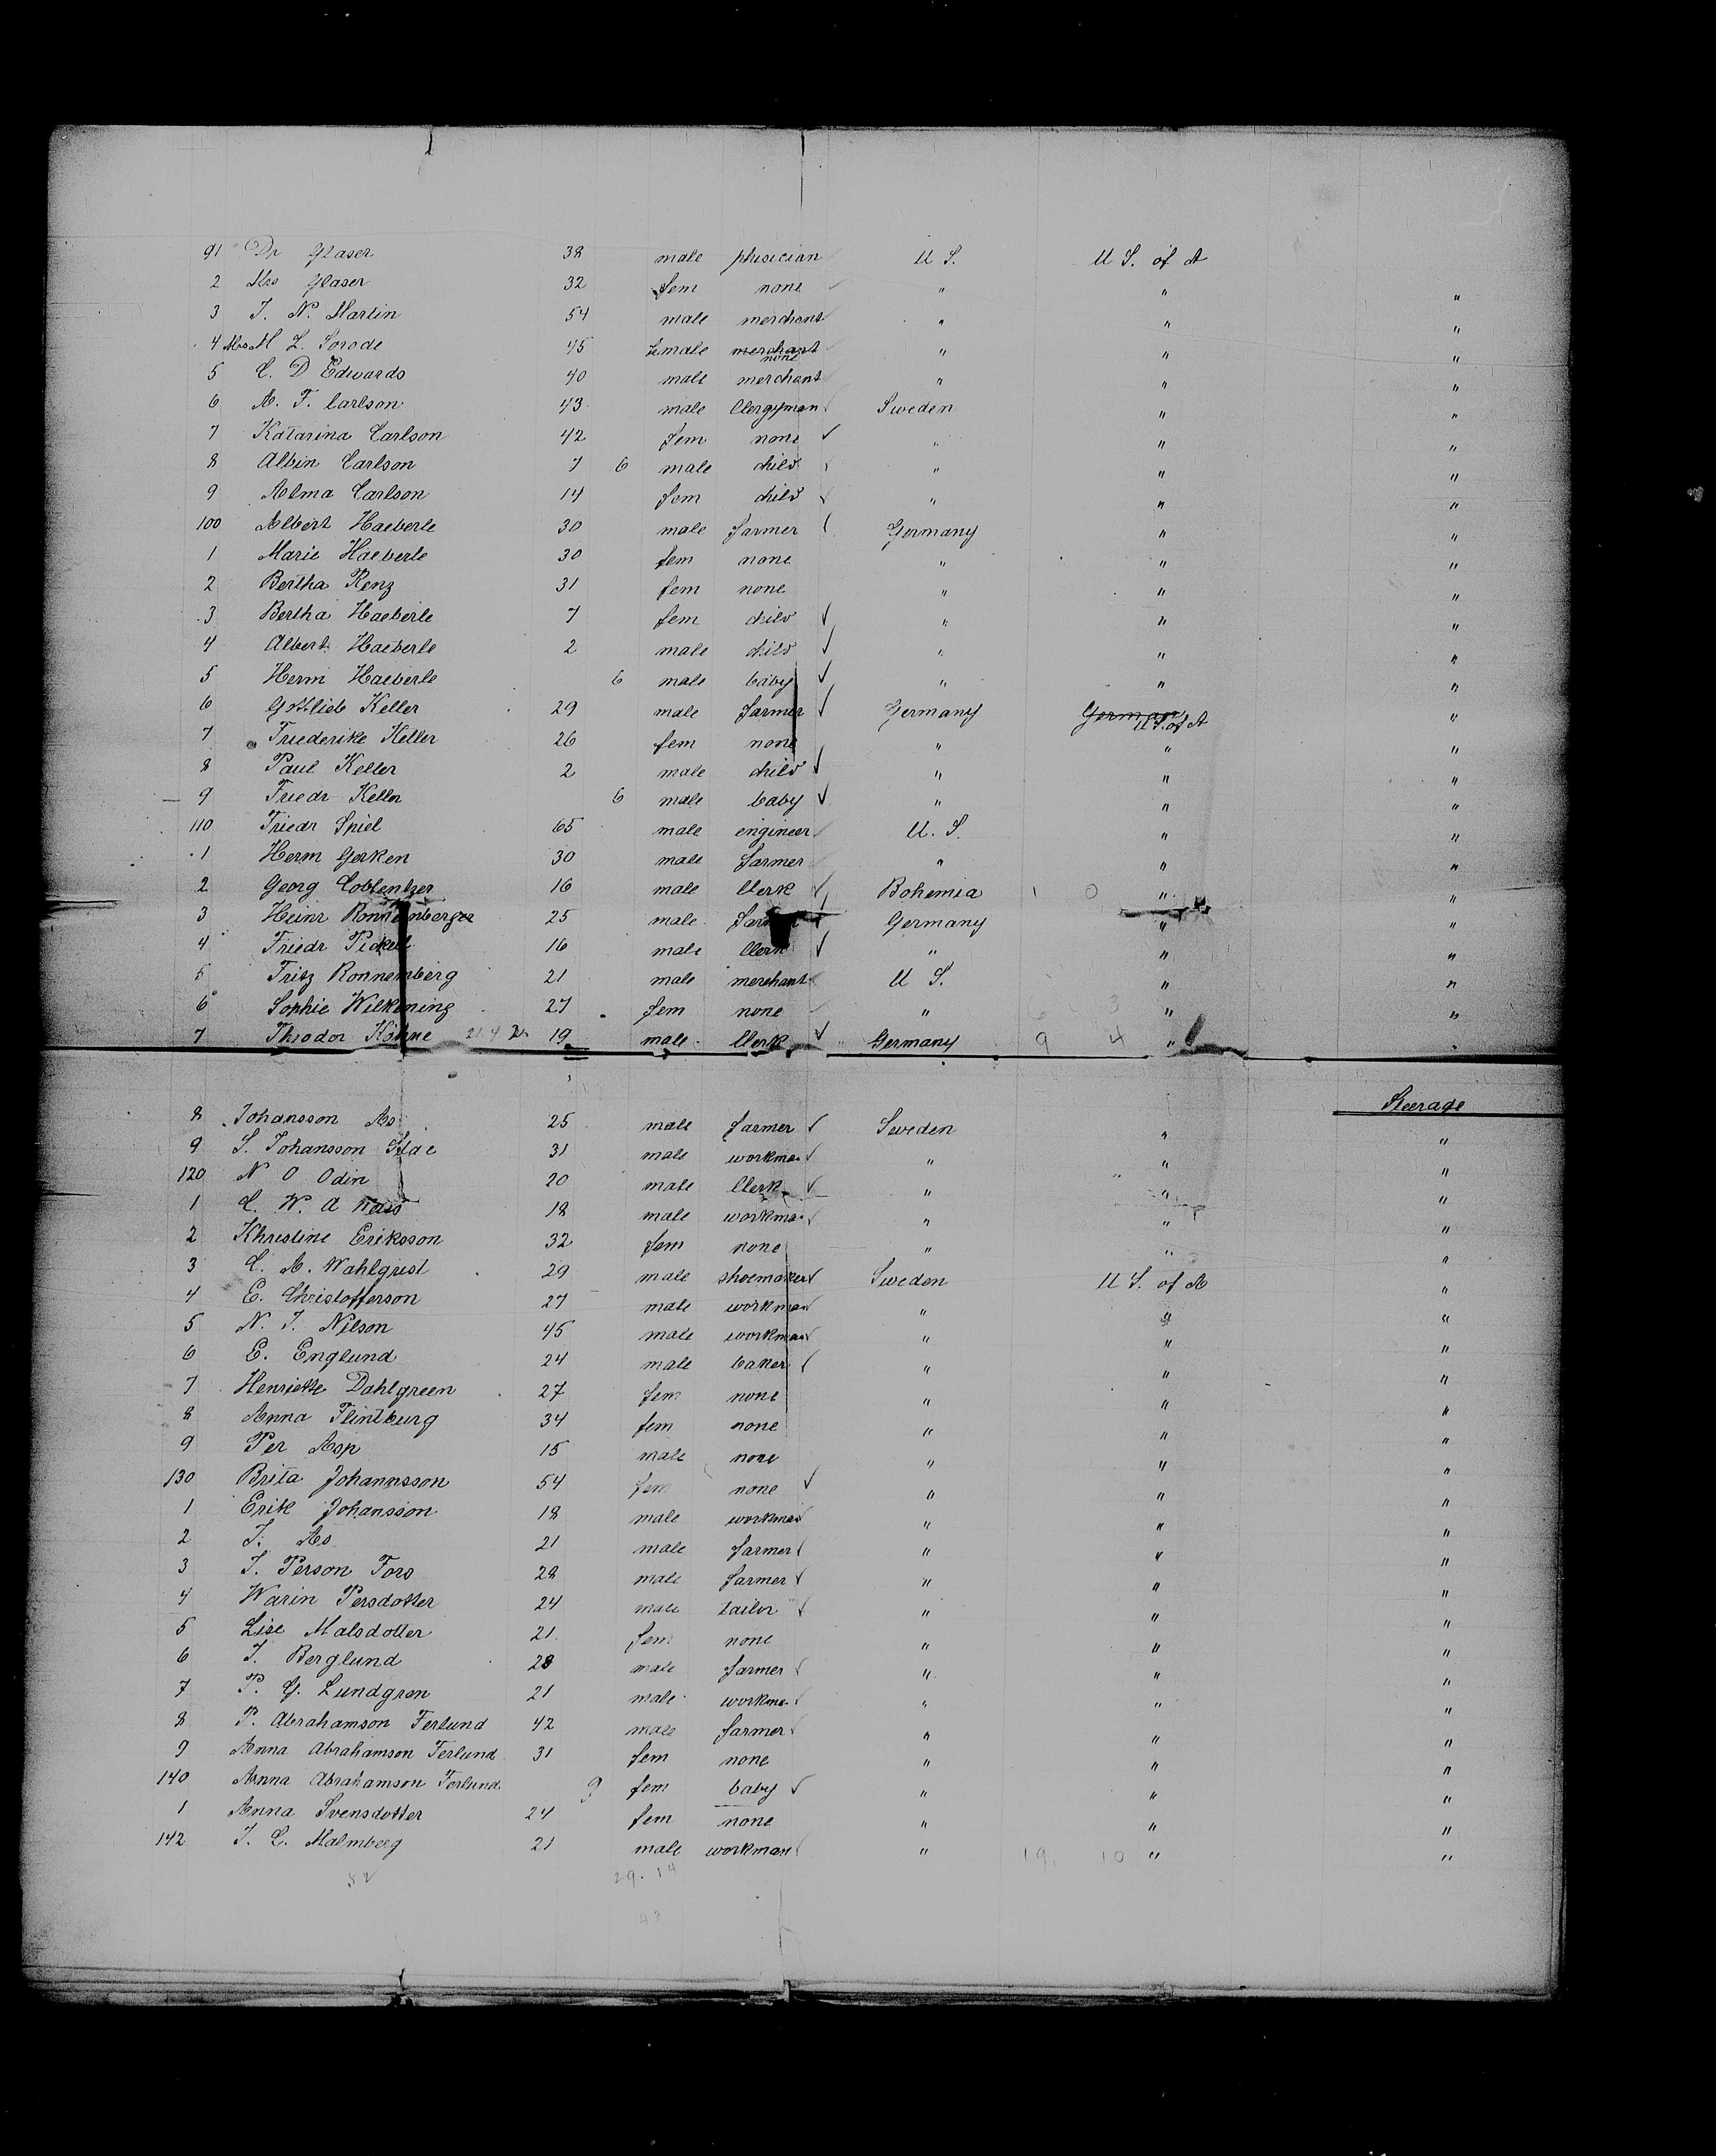 91 Dr Glaser 38 male phisician U S. U S. of A
2 Mrs Glaser 32 fem none " " "
3 J. N. Martin 54 male merchant " " "
4 Mrs M L. Sorode 45 female merchant none " " "
5 C. D Edwards 40 male merchant " " "
6 A. F. Carlson 43 male Clergyman Sweden " "
7 Katarina Carlson 42 fem none " " "
8 Albin Carlson 7 6 male child " " "
9 Alma Carlson 14 fem child " " "
100 Albert Haeberle 30 male farmer Germany " "
1 Marie Haeberle 30 fem none " " "
2 Bertha Renz 31 fem none " " "
3 Bertha Haeberle 7 fem child " " "
4 Albert Haeberle 2 male child " " "
5 Herm Haeberle 6 male baby " " "
6 Gottlieb Keller 29 male farmer Germany German U S. of A "
7 Friederike Keller 26 fem none " " "
8 Paul Keller 2 male child " " "
9 Friedr Keller 6 male baby " " "
110 Friedr Spiel 65 male engineer U. S. " "
1 Herm Gerken 30 male farmer " " "
2 Georg Coblentzer 16 male Clerk Bohemia 1 0 " "
3 Heinr Ronnenberger 25 male farmer Germany " "
4 Friedr Pickel 16 male Clerk " " "
5 Fritz Ronnemberg 21 male merchant U S. " "
6 Sophie Wilkening 27 fem none " 6 3 " "
7 Theodor Köhne 19 male Clerk Germany 9 4 " "
Steerage
8 Johansson As 25 male farmer Sweden " "
9 S. Johansson 31 male workman " " "
120 N O Odin 20 male Clerk " " "
1 C. W. A 18 male workman " " "
2 Khristine Eriksson 32 fem none " " "
3 C. A. Wahlqvist 29 male shoemaker Sweden U S. of A "
4 E. Christofferson 27 male workman " " "
5 N. J. Nilson 45 male workman " " "
6 E. Englund 24 male baker " " "
7 Henriette Dahlgreen 27 fem none " " "
8 Anna Flintburg 34 fem none " " "
9 Per Asp 15 male none " " "
130 Brita Johannsson 54 fem none " " "
1 Erik Johansson 18 male workman " " "
2 J. As 21 male farmer " " "
3 J. Person Fors 28 male farmer " " "
4 Warin Persdotter 24 male tailor " " "
5 Lise Malsdotter 21 fem none " " "
6 J. Berglund 28 male farmer " " "
7 P. G. Lundgren 21 male workman " " "
8 P. Abrahamson Ferlund 42 male farmer " " "
9 Anna Abrahamson Ferlund 31 fem none " " "
140 Anna Abrahamson Ferlund 9 fem baby " " "
1 Anna Svensdotter 24 fem none " " "
142 J. C. Malmberg 21 male workman " 19. 10 " "
52 29. 14
43